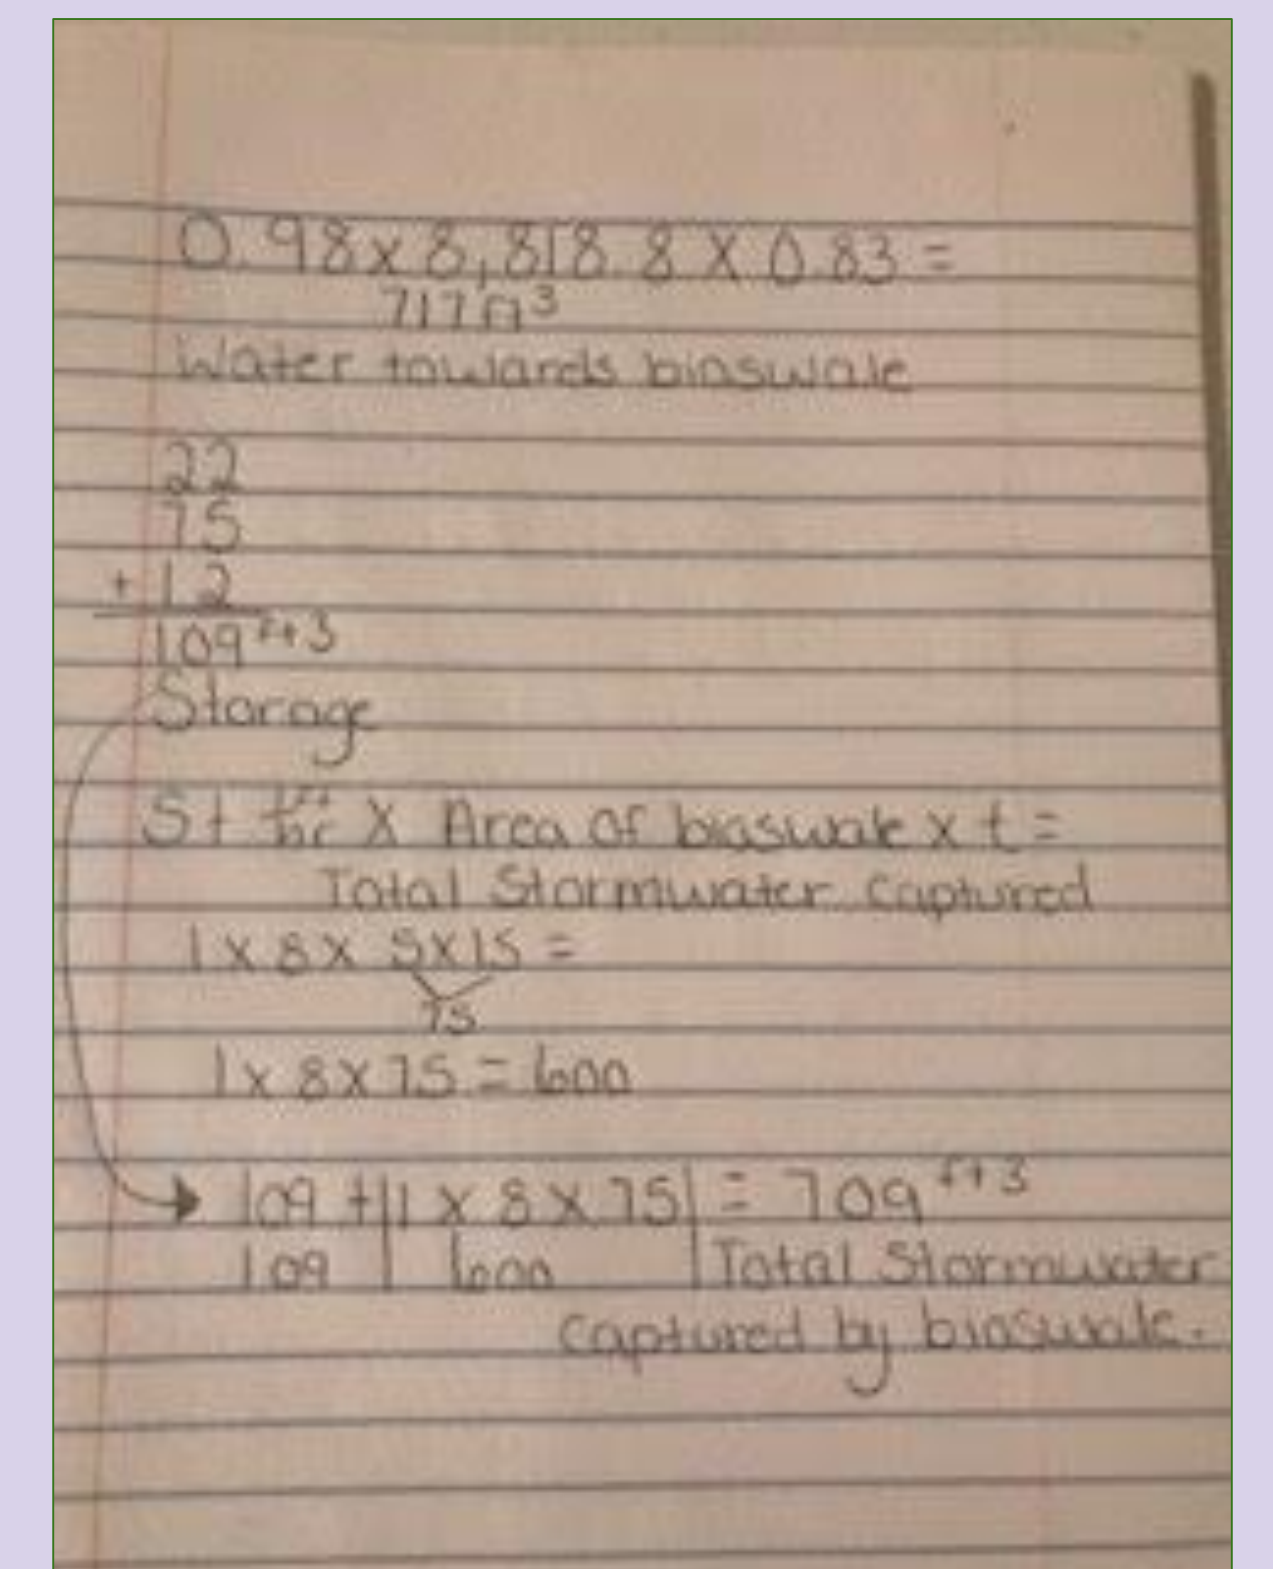 0.98 x 8,818.8 x 0.83 =
717 ft³
Water towards bioswale
22
75
+ 12
109 ft3
Storage
S + ft/hr x Area of bioswale x t =
Total Stormwater captured
1 x 8 x 5x15 =
75
1 x 8 x 75 = 600
109 + 1 x 8 x 75 = 709 ft3
109 600 Total Stormwater
captured by bioswale.